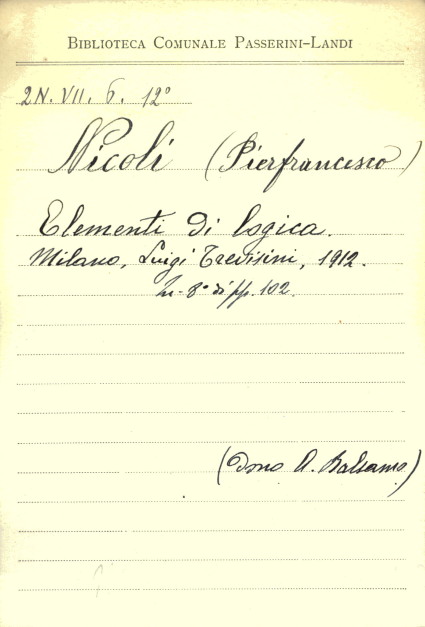 BIBLIOTECA COMUNALE PASSERINI-LANDI
2N. VII. 6. 12°
Nicoli (Pierfrancesco)
Elementi di logica.
Milano, Luigi Trevisini, 1912.
In-8° di pp. 102.
(Dono A. Balsamo)